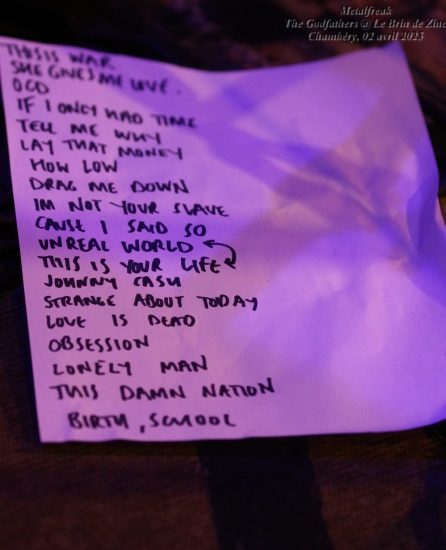 Metalfreak
The Godfathers @ Le Brin de Zinc
Chambéry, 02 avril 2025
THIS IS WAR
SHE GIVES ME LOVE.
OCD
IF I ONLY HAD TIME
TELL ME WHY
LAY THAT MONEY
HOW LOW
DRAG ME DOWN
IM NOT YOUR SLAVE
CAUSE I SAID SO
UNREAL WORLD
THIS IS YOUR LIFE
JOHNNY CASH
STRANGE ABOUT TODAY
LOVE IS DEAD
OBSESSION
LONELY MAN
THIS DAMN NATION
BIRTH, SCHOOL